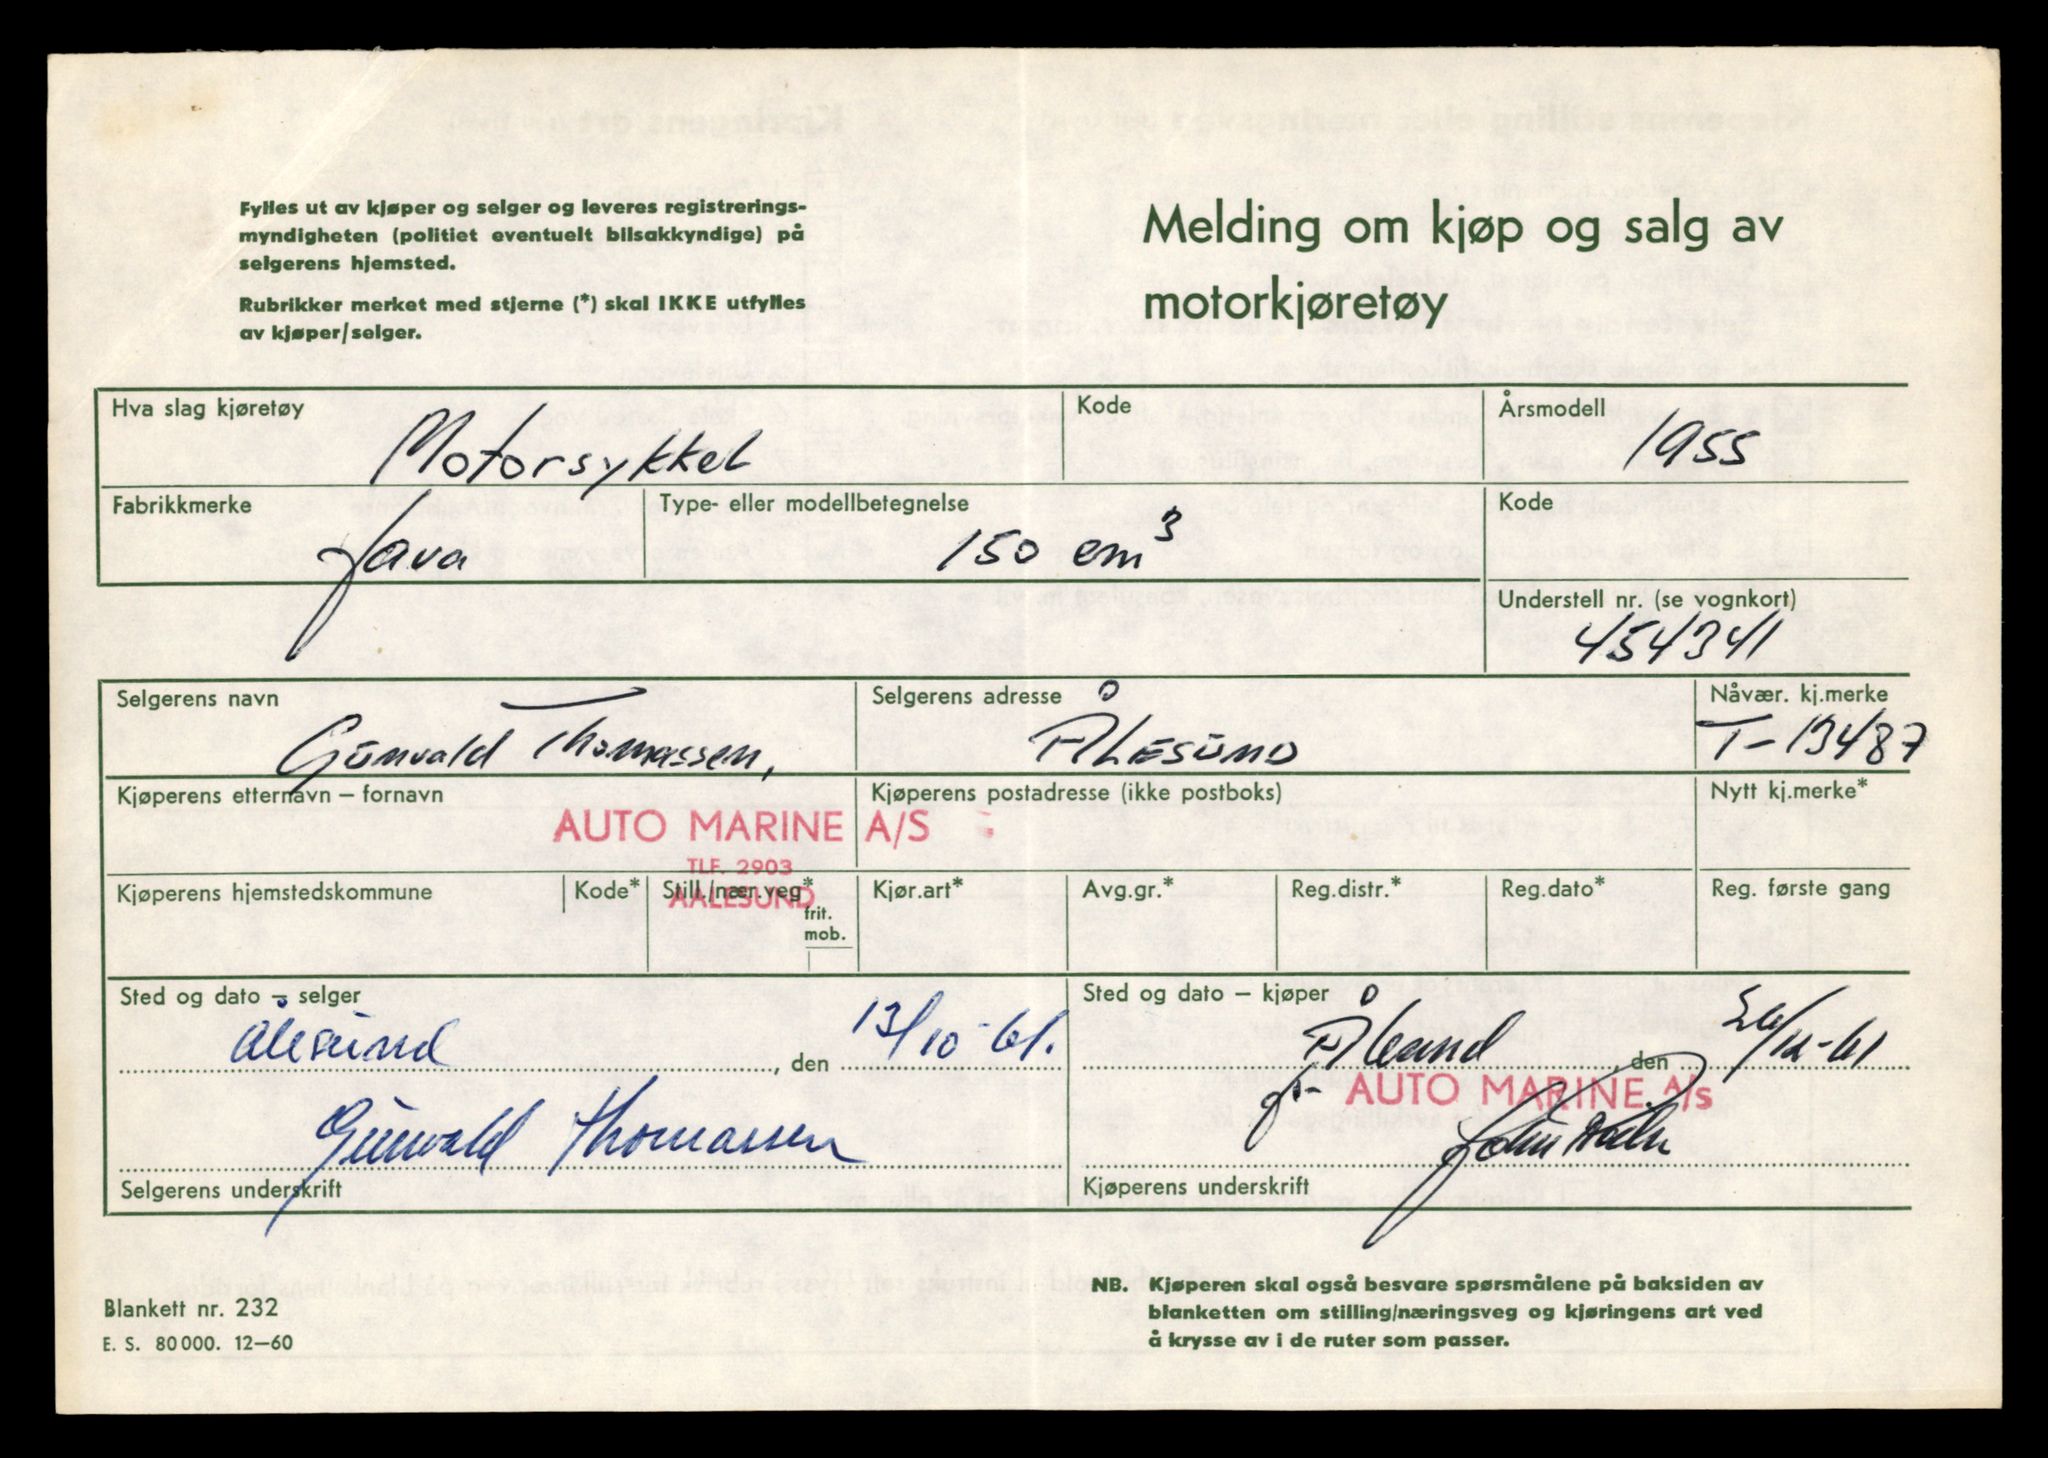 Fylles ut av kjøper og selger og leveres registrerings-
myndigheten (politiet eventuelt bilsakkyndige) på
selgerens hjemsted.
Rubrikker merket med stjerne (*) skal IKKE utfylles
av kjøper/selger.
Melding om kjøp og salg av
motorkjøretøy
Hva slag kjøretøy
Motorsykkel
Kode
Årsmodell
1955
Fabrikkmerke
Java
Type- eller modellbetegnelse
150 cm³
Kode
Understell nr. (se vognkort)
454341
Selgerens navn
Gunvald Thomassen,
Selgerens adresse
ÅLESUND
Nåvær. kj.merke
T-13487
Kjøperens etternavn – fornavn
AUTO MARINE A/S
TLF. 2903
AALESUND
Kjøperens postadresse (ikke postboks)
Nytt kj.merke*
Kjøperens hjemstedskommune
Kode*
Still./nær.veg*
frit.
mob.
Kjør.art*
Avg.gr.*
Reg.distr.*
Reg.dato*
Reg. første gang
Sted og dato – selger
Ålesund, den 13/10-61.
Gunvald Thomassen
Selgerens underskrift
Sted og dato – kjøper
Ålesund, den /12-61
AUTO MARINE A/S
John
Kjøperens underskrift
Blankett nr. 232
E. S. 80 000. 12–60
NB. Kjøperen skal også besvare spørsmålene på baksiden av
blanketten om stilling/næringsveg og kjøringens art ved
å krysse av i de ruter som passer.